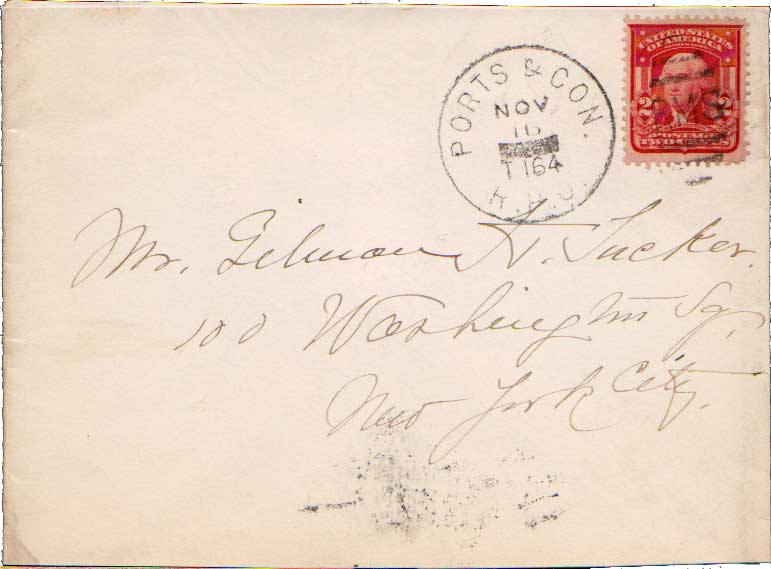 PORTS & CON.
NOV
16
T 164
R.P.O.
UNITED STATES
OF AMERICA
2 2
POSTAGE
Mr. Gilman H. Tucker.
100 Washington Sq.
New York City.